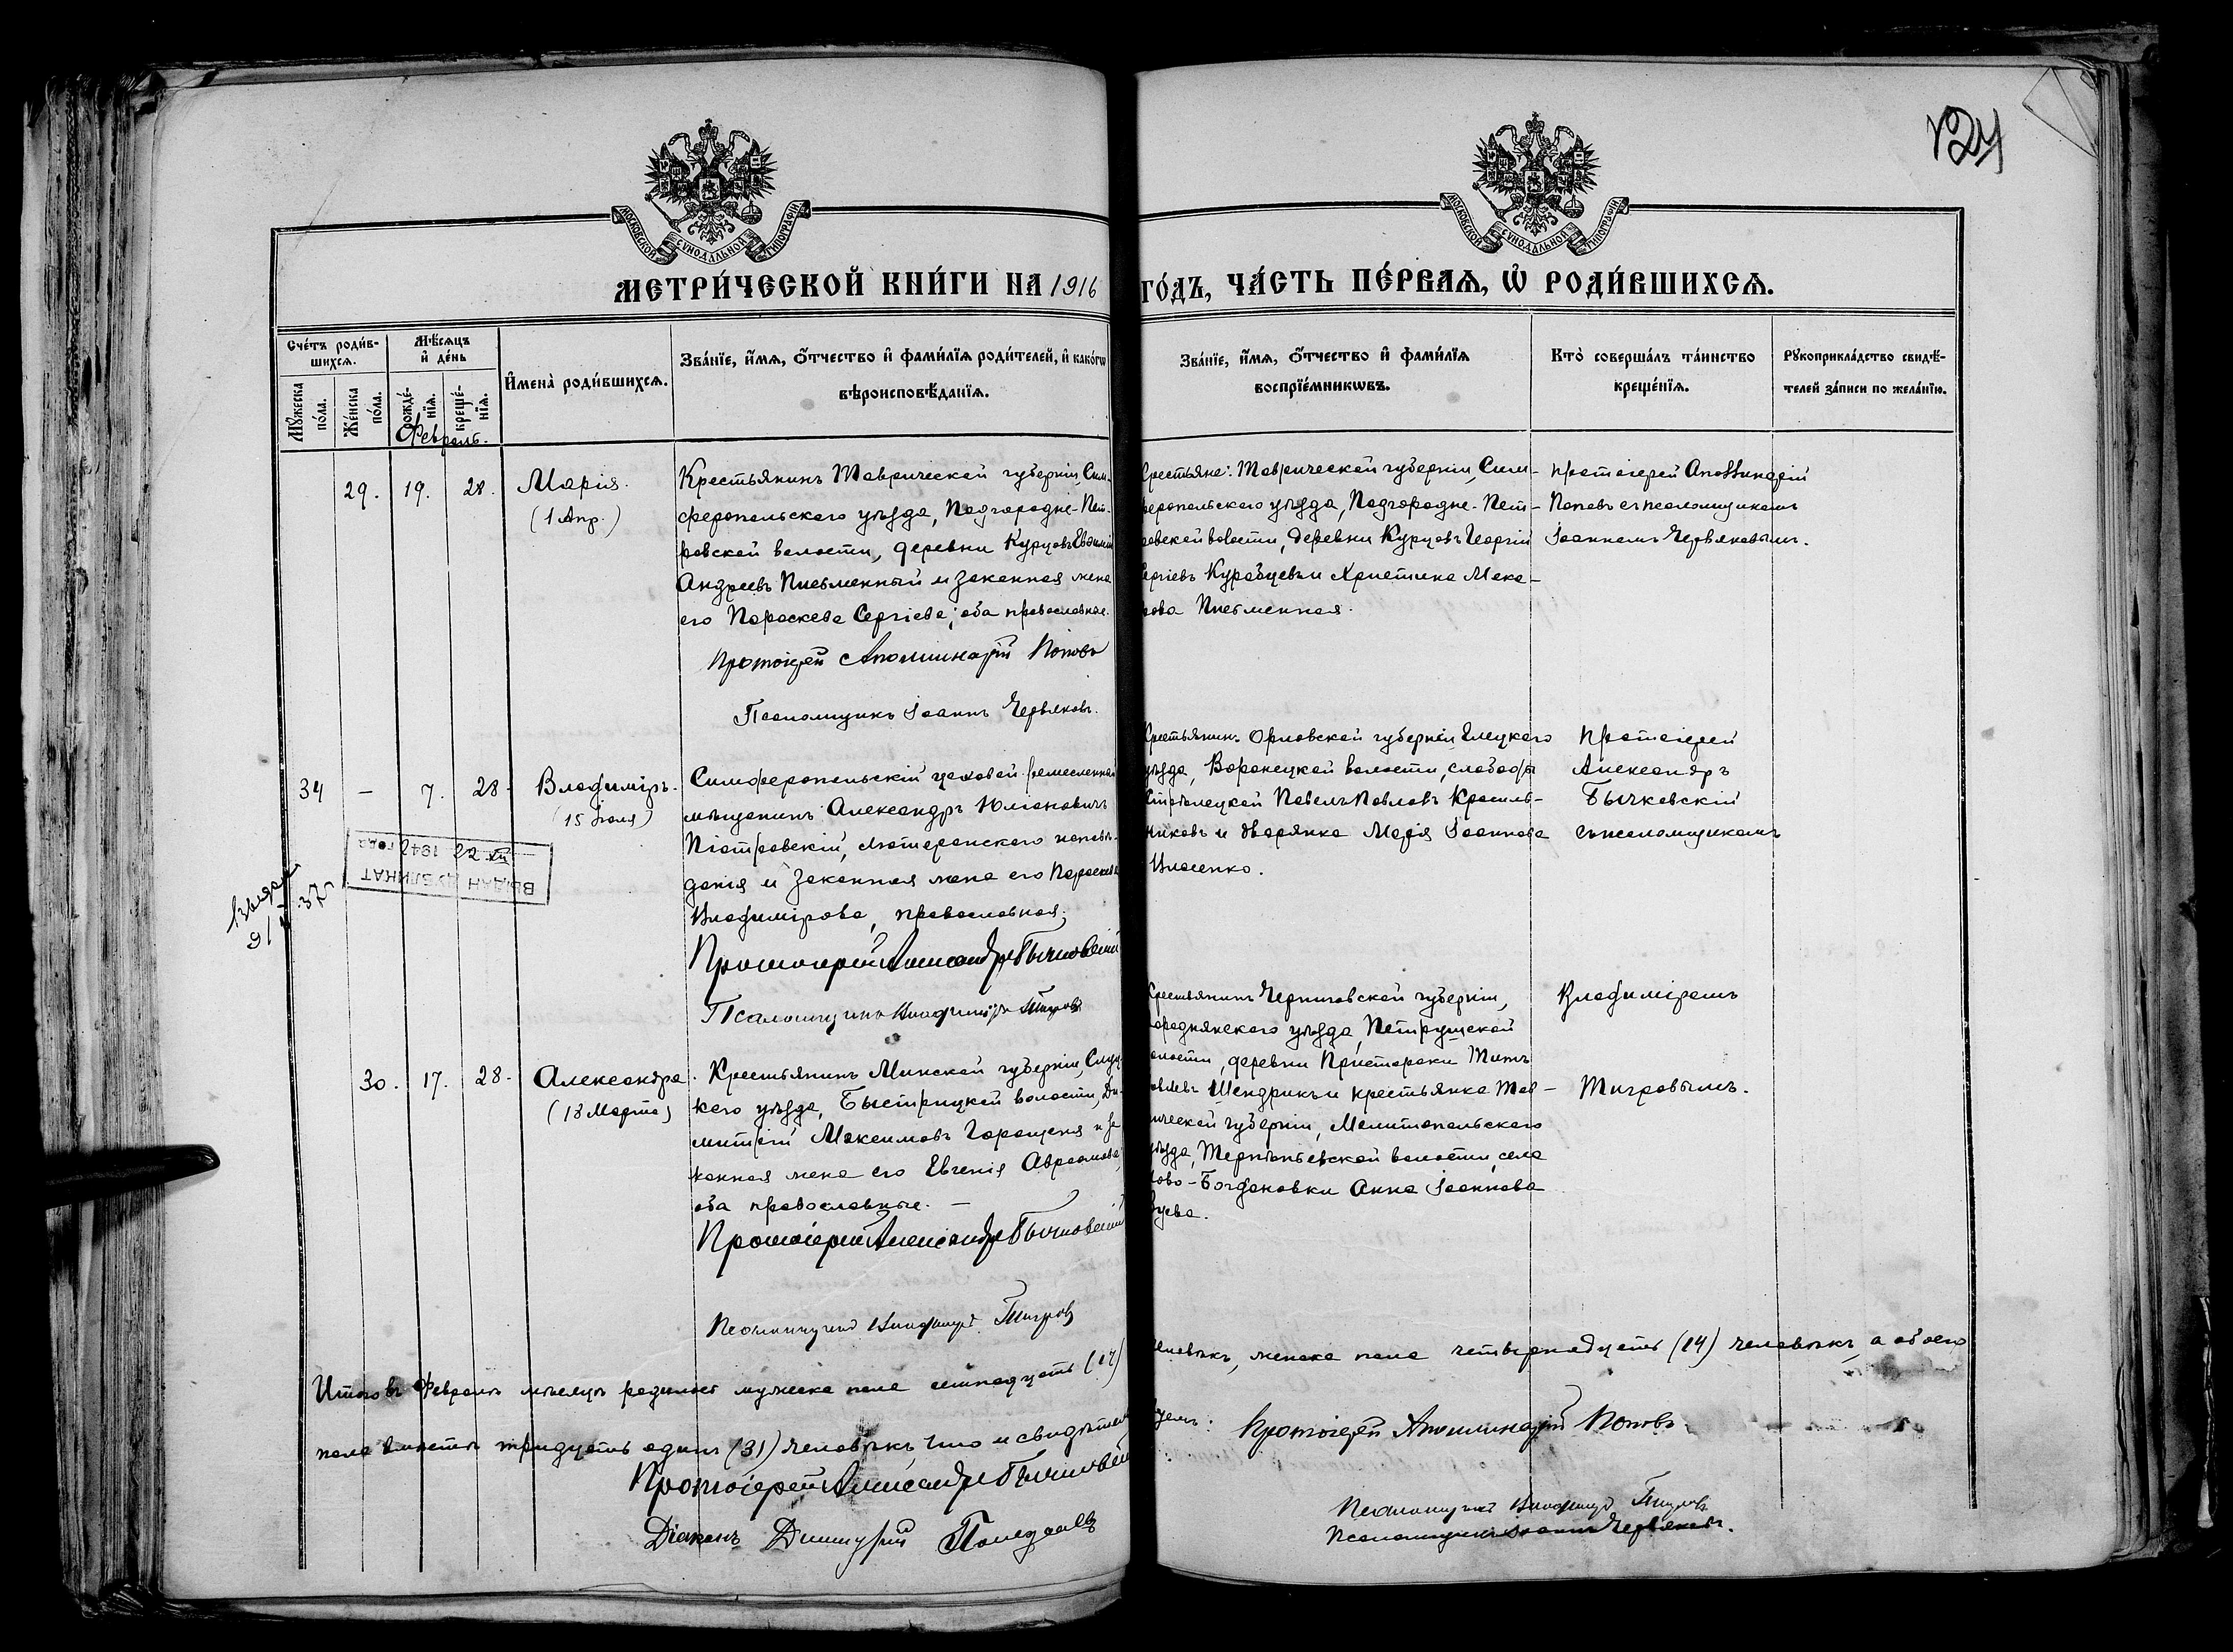 124
МОСКОВСКОЙ СѴНОДАЛЬНОЙ ТИПОГРАФІИ
МОСКОВСКОЙ СѴНОДАЛЬНОЙ ТИПОГРАФІИ
МЕТРИ́ЧЕСКОЙ КНИ́ГИ НА 1916
ГО́ДЪ, ЧА́СТЬ ПЕ́РВАѦ, Ѡ҆ РОДИ́ВШИХСѦ.
Сче́тъ роди́в-
шихсѧ.
Мꙋжеска по́ла.
Же́нска по́ла.
Мѣ́сѧцъ и҆ де́нь
рожде́-нїѧ.
креще́-нїѧ.
И҆мена̀ роди́вшихсѧ.
Зва́нїе, и҆́мѧ, ѻ҆́тчество и҆ фами́лїѧ роди́телей, и҆ како́гѡ
вѣроисповѣ́данїѧ.
Зва́нїе, и҆́мѧ, ѻ҆́тчество и҆ фами́лїѧ
воспрїе́мникѡвъ.
Кто̀ соверша́лъ та́инство
креще́нїѧ.
Рꙋкоприкла́дство свидѣ́-
телей за́писи по жела́нїю.
Февраль.
29. 19. 28. Марія.
(1 Апр.)
Крестьянинъ Таврической губерніи, Сим-
феропольскаго уѣзда, Подгородне-Пет-
ровской волости, деревни Курцовъ Евфимій
Андреевъ Письменный и законная жена
его Параскева Сергіева; оба православные.
Протоіерей Аполлинарій Поповъ
Псаломщикъ Іоаннъ Червяковъ.
Крестьяне: Таврической губерніи, Сим-
феропольскаго уѣзда, Подгородне-Пет-
ровской волости, деревни Курцовъ Георгій
Сергіевъ Курабцевъ и Христина Мака-
рова Письменная.
Протоіерей Аполлинарій
Поповъ съ псаломщикомъ
Іоанномъ Червяковымъ.
34 — 7. 28. Владиміръ.
(15 Іюля)
Симферопольскій цеховой-ремесленный
мѣщанинъ Александръ Юліановичъ
Піотровскій, лютеранскаго исповѣ-
данія и законная жена его Параскева
Владимірова, православная;
Протоіерей Александръ Бычковскій
Псаломщикъ Владиміръ Тигровъ
Крестьянинъ Орловской губерніи Елецкаго
уѣзда, Воронецкой волости, слободы
Павелъ Павловъ Красиль-
никовъ и дворянка Марія Іоаннова
Власенко.
Протоіерей
Александръ
Бычковскій
съ псаломщикомъ
Владиміромъ
Тигровымъ.
ВЫДАН ДУБЛИКАТ
22 XII 1942 года
Выдан
30. 17. 28. Александра.
(18 Марта)
Крестьянинъ Минской губерніи, Слуц-
каго уѣзда, Быстрицкой волости, Ди-
митрій Максимовъ Горощеня и за-
конная жена его Евгенія Авраамова;
оба православные. —
Протоіерей Александръ Бычковскій
Псаломщикъ Владиміръ Тигровъ
Крестьянинъ Черниговской губерніи,
Городнянскаго уѣзда, Петрушской
волости, деревни Пристороки Титъ
Щендрикъ и крестьянка Тав-
рической губерніи, Мелитопольскаго
уѣзда, Терпѣньевской волости, села
Ново-Богдановки Анна Іоаннова
Итого въ Февралѣ мѣсяцѣ родилось мужеска пола семнадцать (17)
человѣкъ, женска пола четырнадцать (14) человѣкъ, а обоего
пола вмѣстѣ тридцать одинъ (31) человѣкъ, что и свидѣтель
Протоіерей Александръ Бычковскій
Протоіерей Аполлинарій Поповъ
Діаконъ Димитрій
Псаломщикъ Владиміръ Тигровъ
Псаломщикъ Іоаннъ Червяковъ.